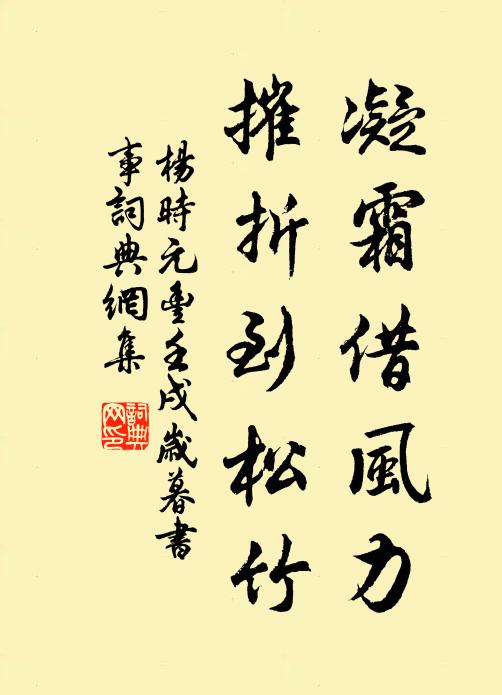 凝霜借風力
摧折到松竹
楊時元豊壬戌歲暮書
事詞典網集
詞典網印